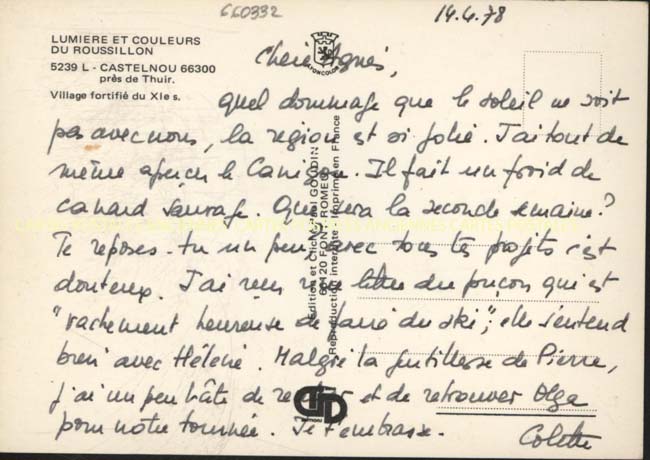 660332
14.4.78
LUMIERE ET COULEURS
DU ROUSSILLON
5239 L - CASTELNOU 66300
près de Thuir.
Village fortifié du XIe s.
Chère Agnès,
quel dommage que le soleil ne soit
pas avec nous, la région est si jolie. J'ai tout de
même aperçu le Canigou. Il fait un froid de
canard sauvage. Que sera la seconde semaine?
Te reposes-tu un peu, avec tous tes projets c'est
douteux. J'ai reçu une lettre du
qui est
"vachement heureuse de faire du ski"; elle s'entend
bien avec Hélène. Malgré la gentillesse de Pierre,
j'ai un peu hâte de rentrer et de retrouver Olga
pour notre tournée. Je t'embrasse.
Colette
Edition et Cliché Paul GOUDIN
66120 FONT-ROMEU
Reproduction interdite - Imprimé en France